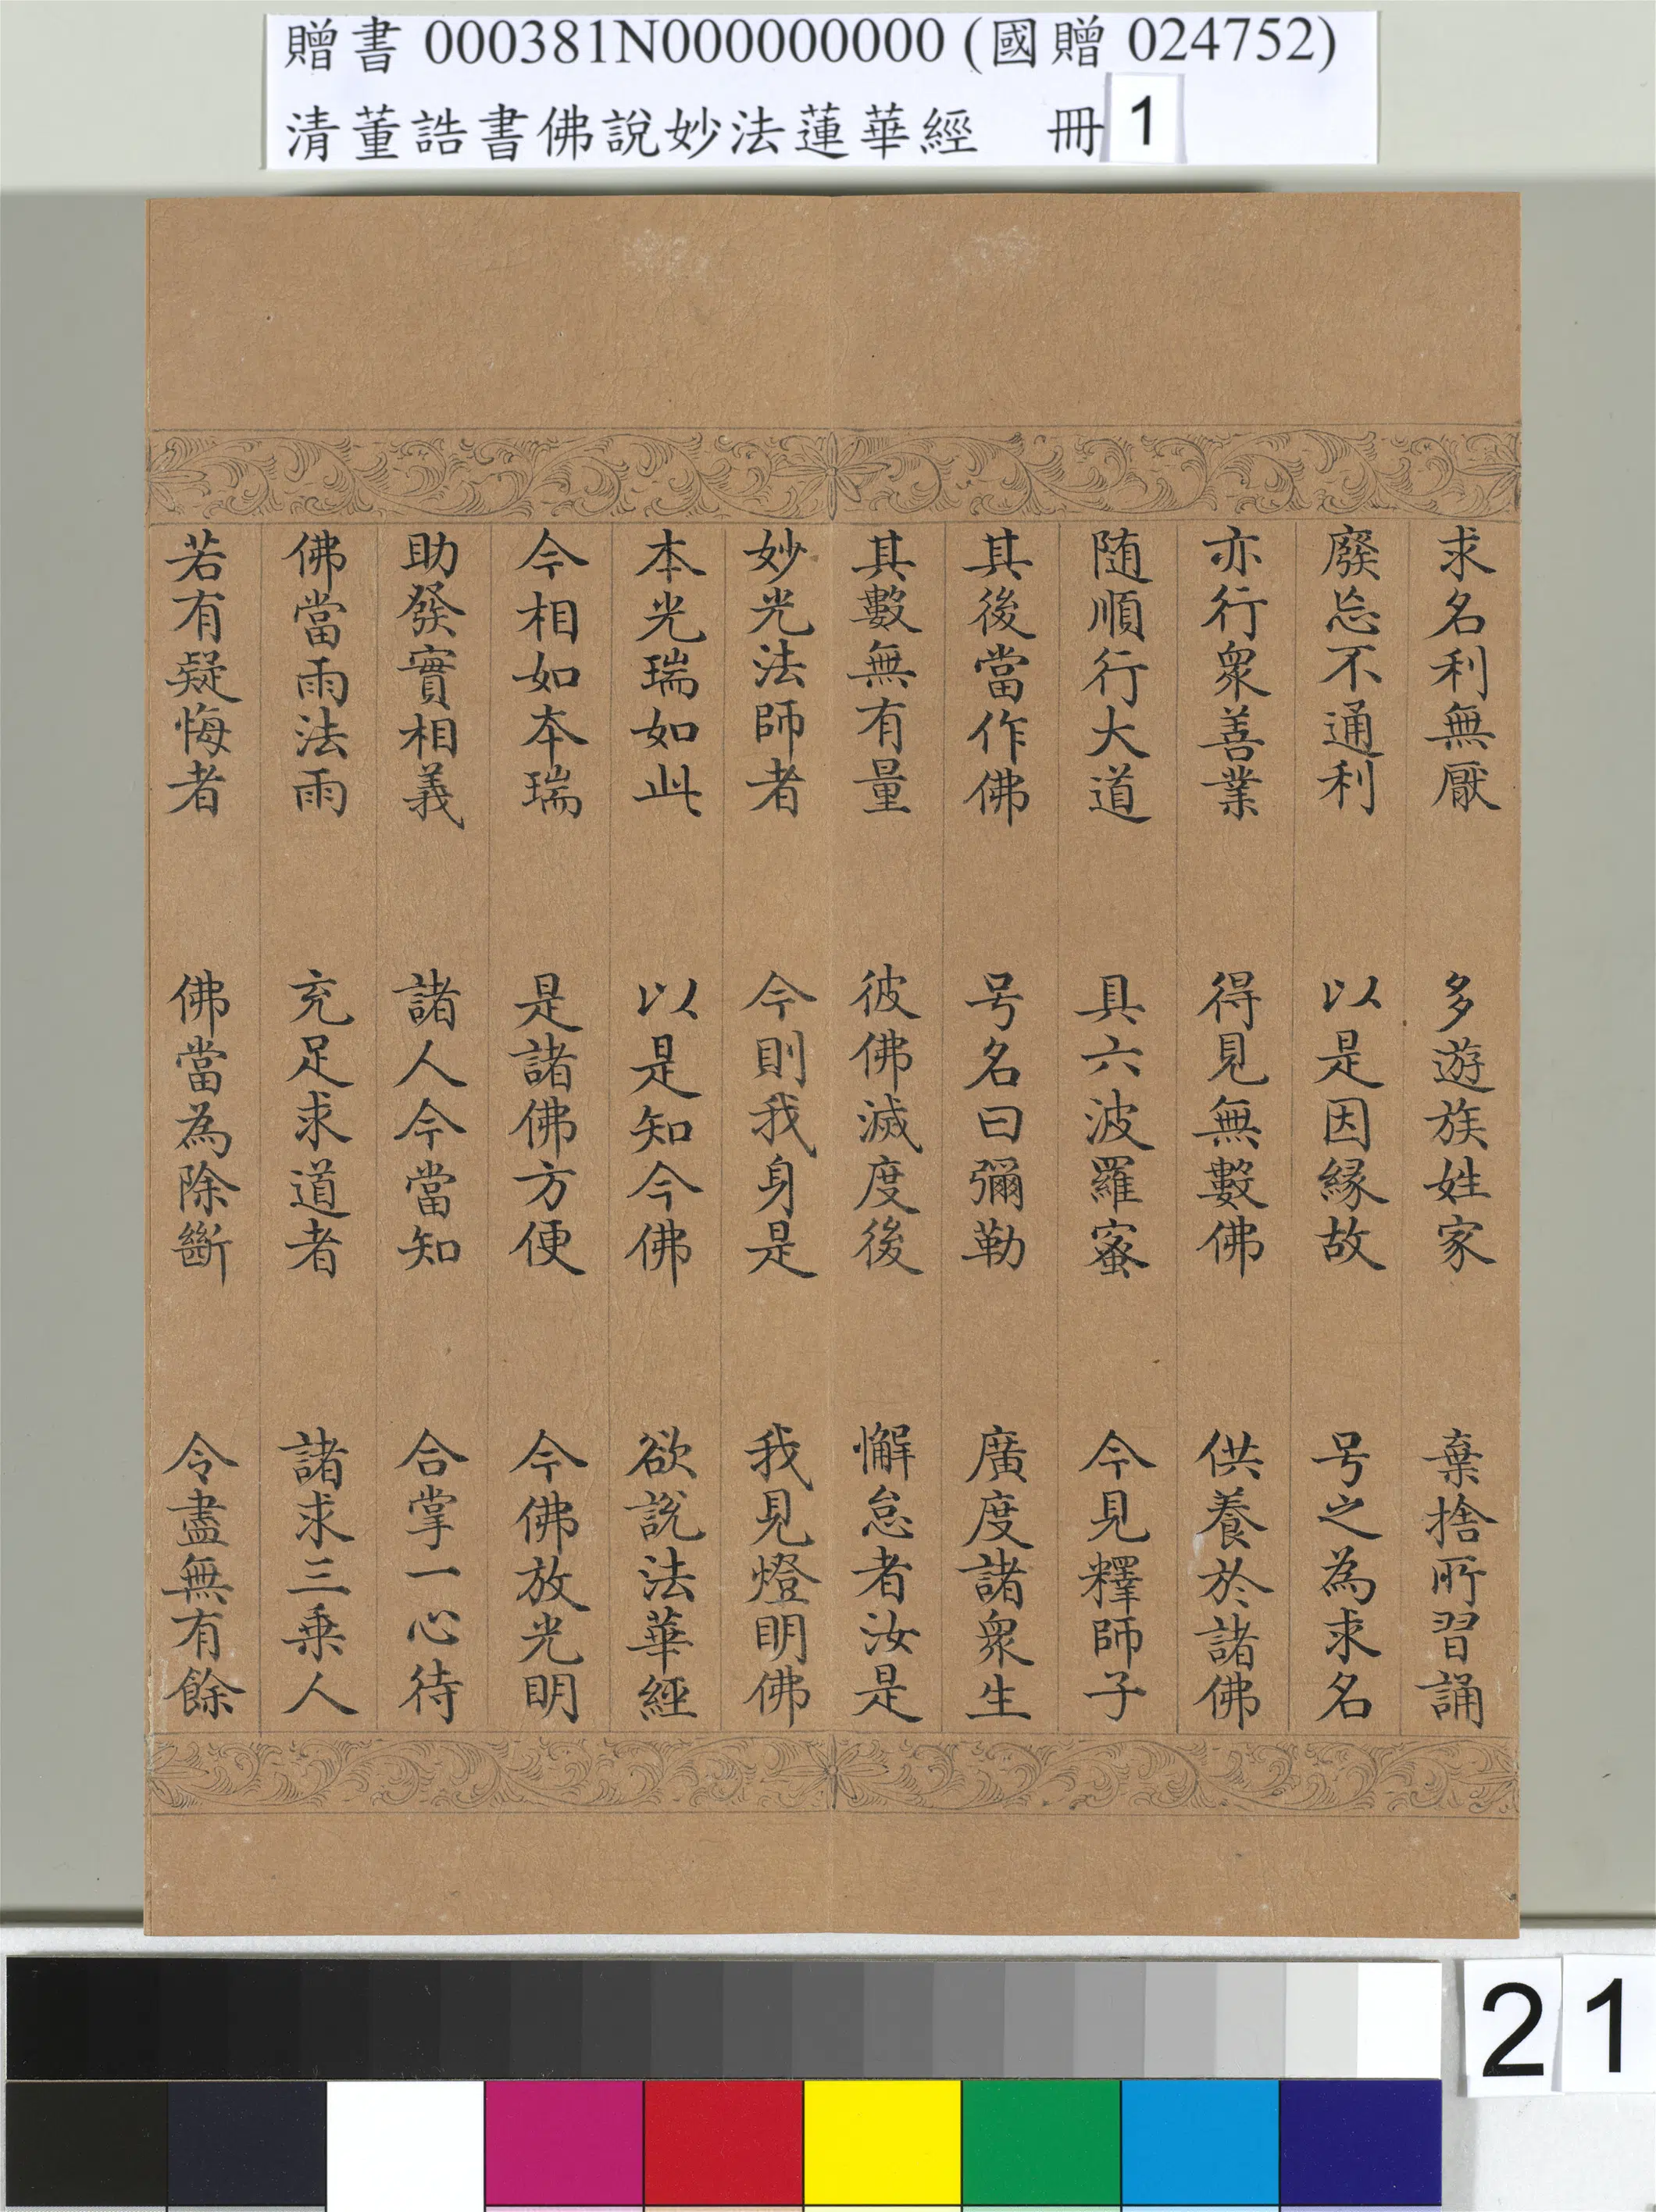 贈書 000381N000000000 (國贈 024752)
清董誥書佛說妙法蓮華經 冊 1
求名利無厭 多遊族姓家 棄捨所習誦
廢忘不通利 以是因緣故 号之為求名
亦行眾善業 得見無數佛 供養於諸佛
随順行大道 具六波羅蜜 今見釋師子
其後當作佛 号名曰彌勒 廣度諸眾生
其數無有量 彼佛滅度後 懈怠者汝是
妙光法師者 今則我身是 我見燈明佛
本光瑞如此 以是知今佛 欲說法華經
今相如本瑞 是諸佛方便 今佛放光明
助發實相義 諸人今當知 合掌一心待
佛當雨法雨 充足求道者 諸求三乘人
若有疑悔者 佛當為除斷 令盡無有餘
21